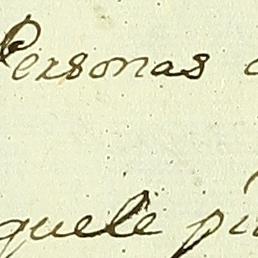 Personas
quele